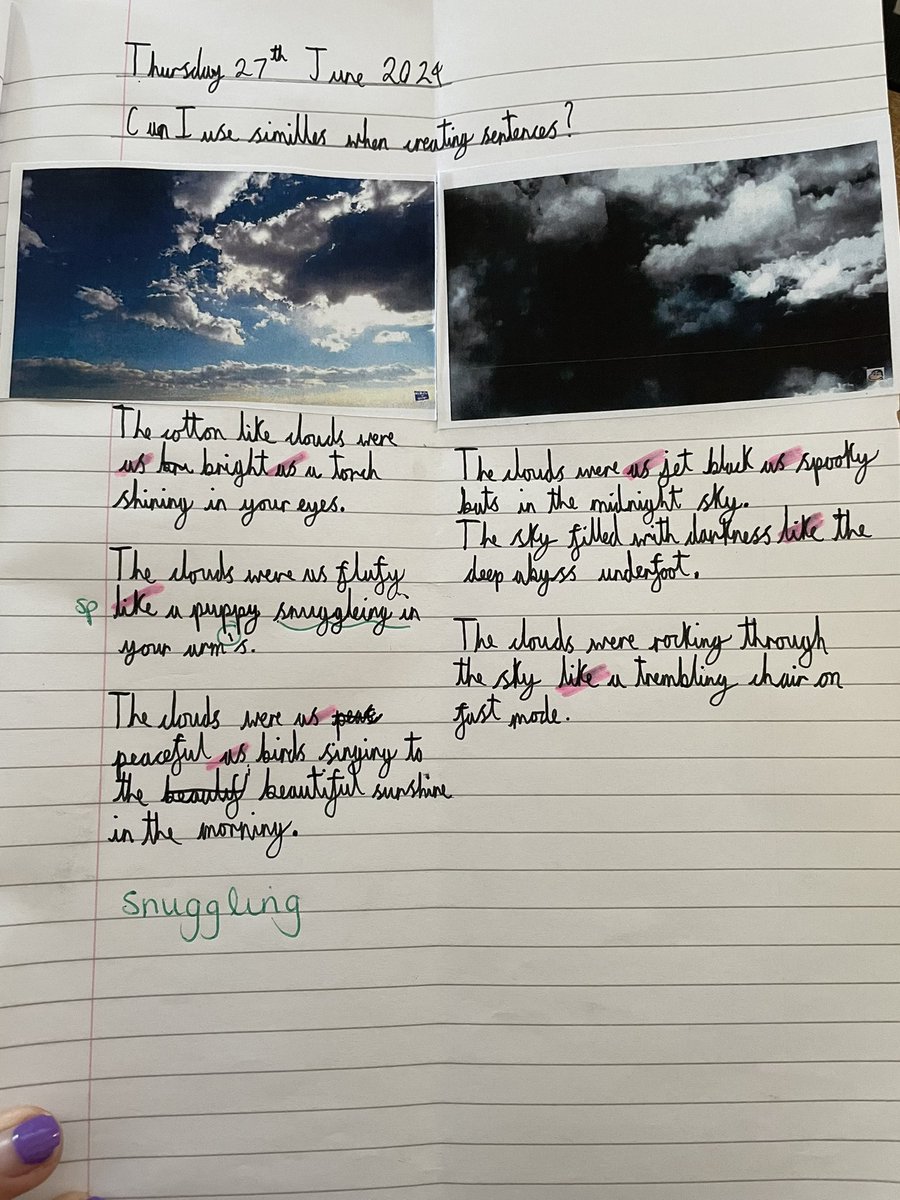 Thursday 27th June 2024
Can I use similles when creating sentences?
The cotton like clouds were
as bru bright as a torch
shining in your eyes.
The clouds were as flufy
sp like a puppy snuggleing in
your arm's.
The clouds were as peac
peaceful as birds singing to
the beautif beautiful sunshine
in the morning.
snuggling
The clouds were as jet black as spooky
bats in the midnight sky.
The sky filled with darkness like the
deep abyss underfoot.
The clouds were rocking through
the sky like a trembling chair on
fast mode.